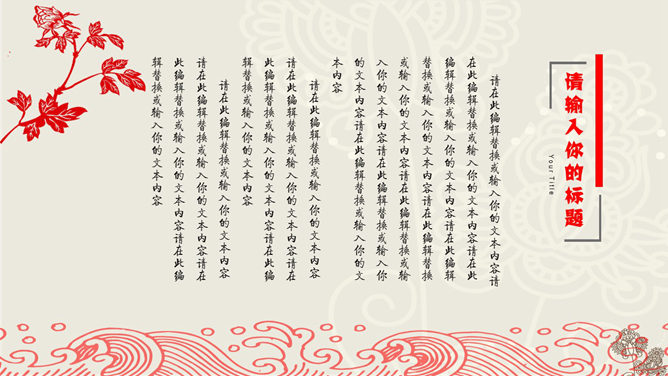 请输入你的标题
Your Title
请在此编辑替换或输入你的文本内容请
在此编辑替换或输入你的文本内容请在此
编辑替换或输入你的文本内容请在此编辑
替换或输入你的文本内容请在此编辑替换
或输入你的文本内容请在此编辑替换或输
入你的文本内容请在此编辑替换或输入你
的文本内容请在此编辑替换或输入你的文
本内容
请在此编辑替换或输入你的文本内容
请在此编辑替换或输入你的文本内容请在
此编辑替换或输入你的文本内容请在此编
辑替换或输入你的文本内容
请在此编辑替换或输入你的文本内容
请在此编辑替换或输入你的文本内容请在
此编辑替换或输入你的文本内容请在此编
辑替换或输入你的文本内容